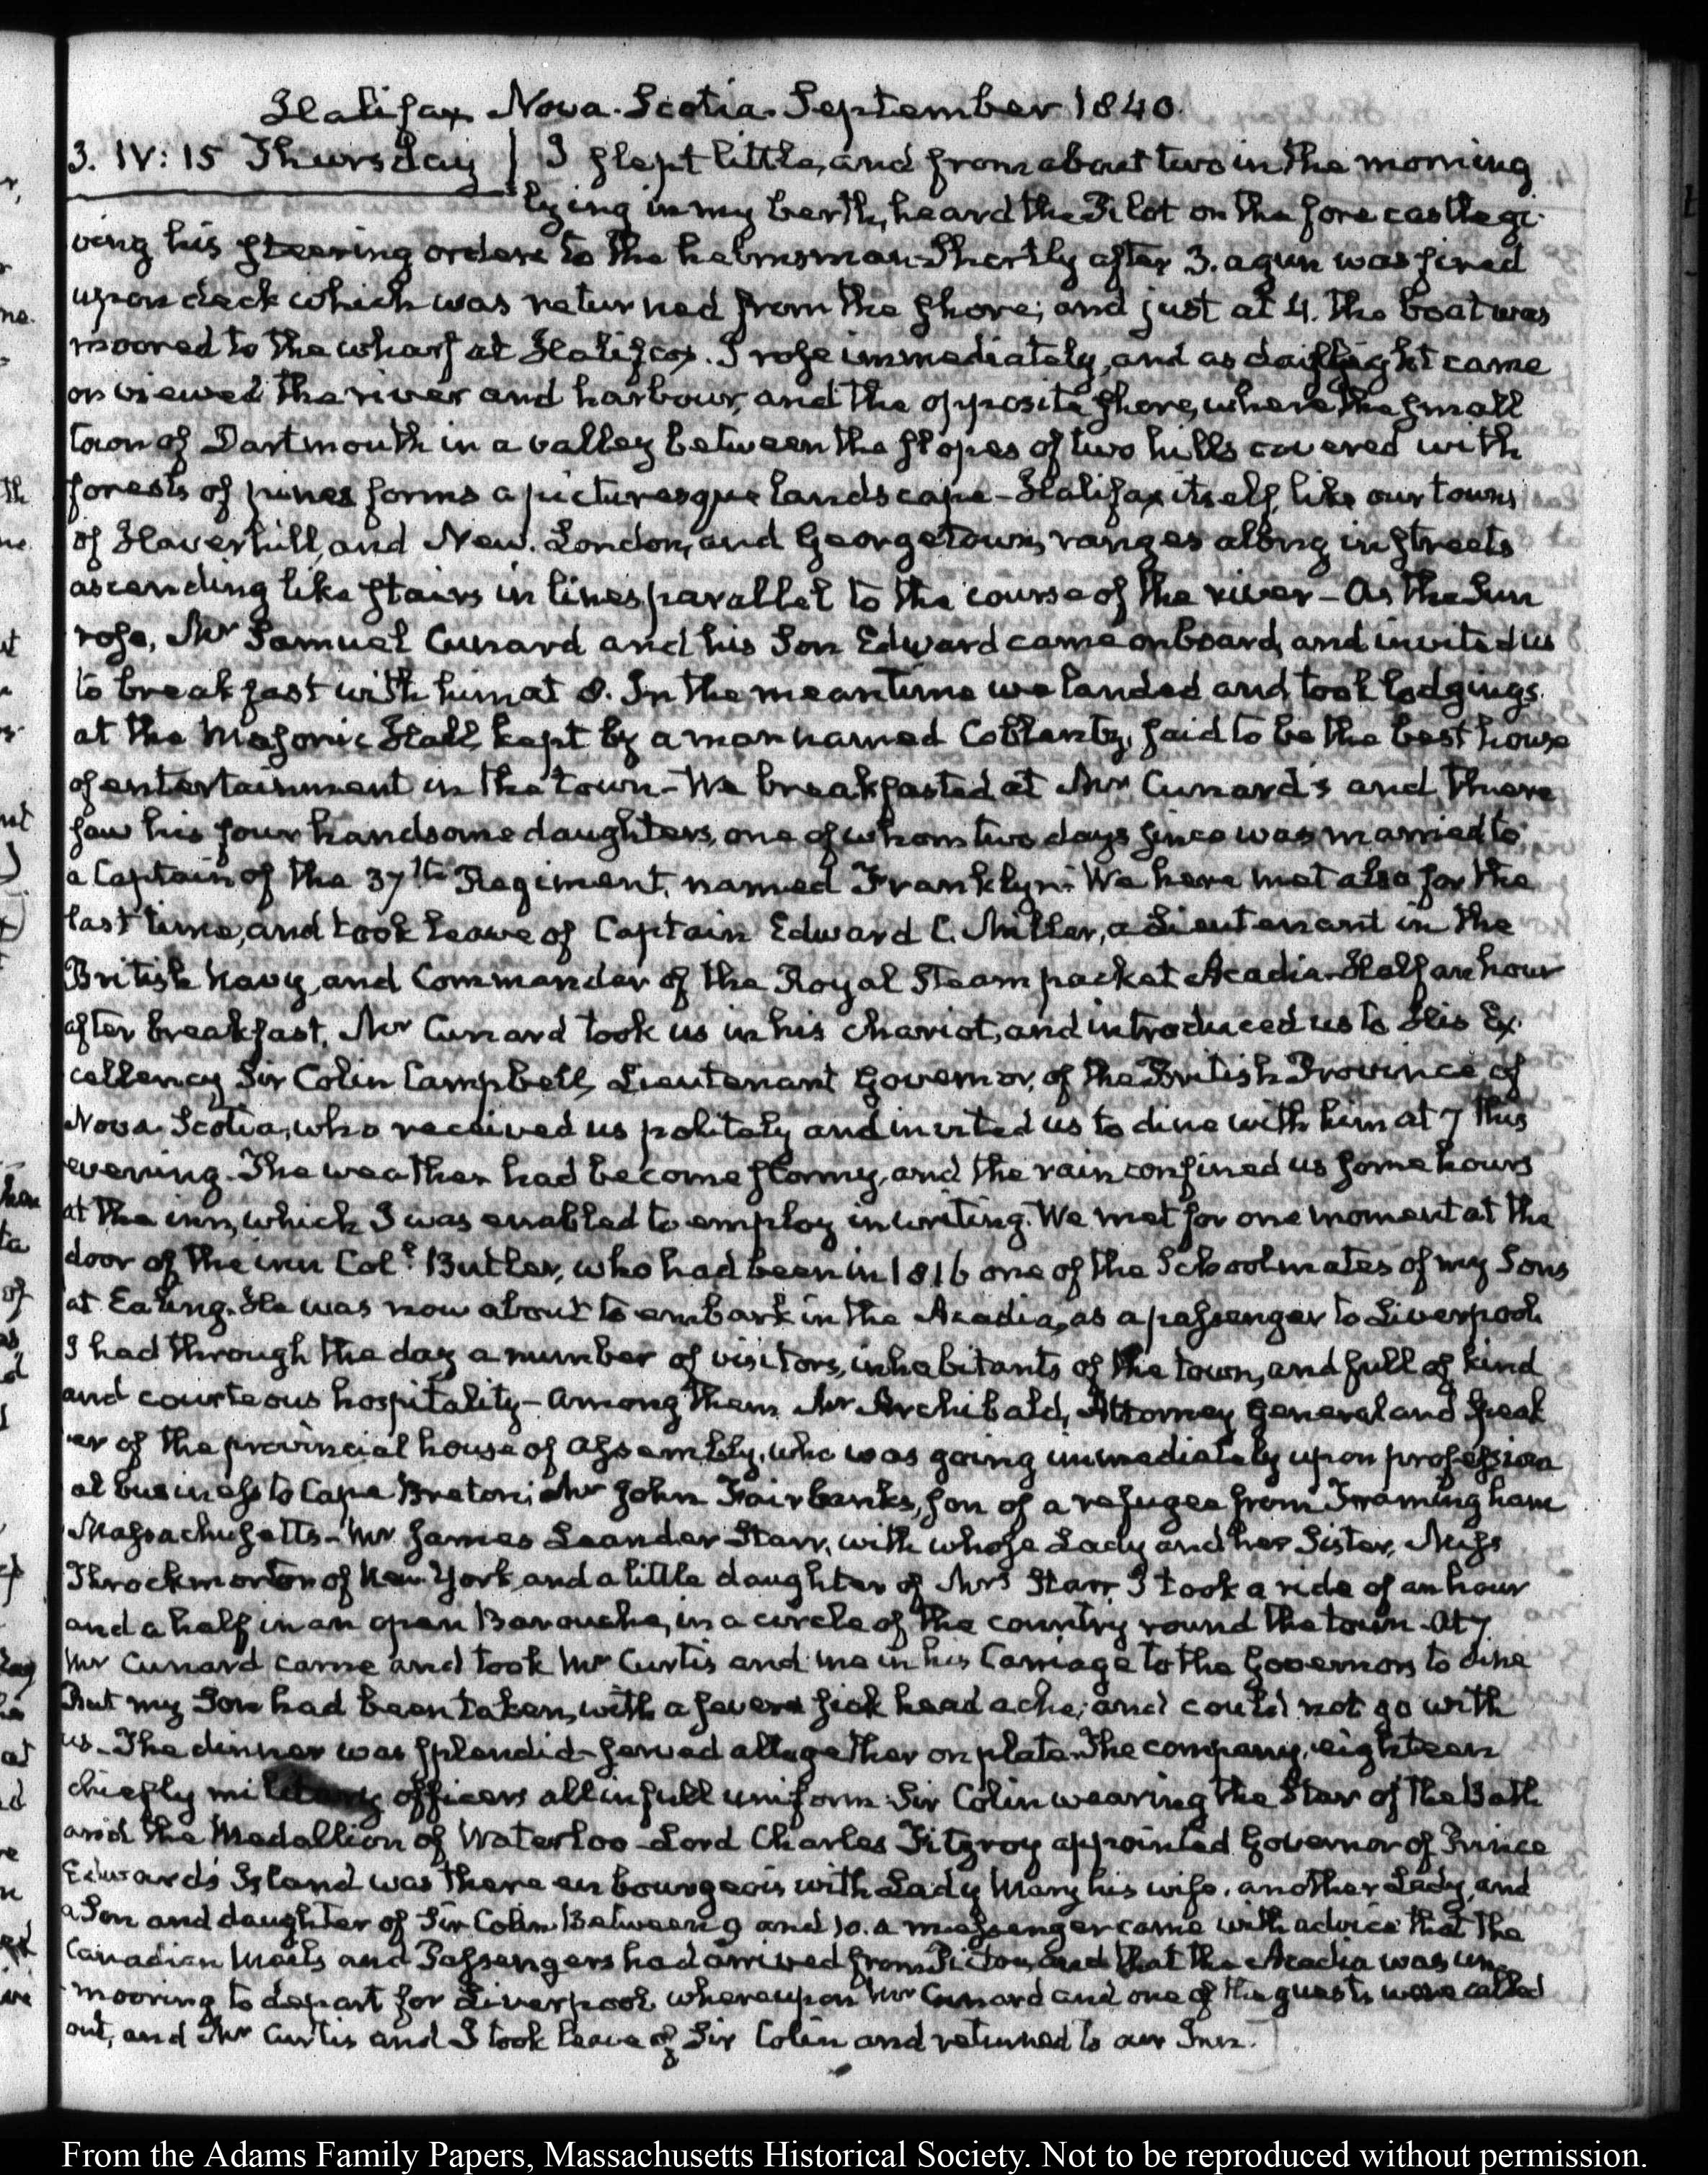 Halifax Nova-Scotia. September 1840.
3. IV:15 Thursday } I slept little, and from about two in the morning
lying in my berth, heard the Pilot on the forecastle gi-
ving his steering orders to the helmsman. Shortly after 3. a gun was fired
upon deck which was returned from the shore; and just at 4. the boat was
moored to the wharf at Halifax. I rose immediately, and as daylight came
on viewed the river and harbour, and the opposite shore, where the small
town of Dartmouth in a valley between the slopes of two hills covered with
forests of pines forms a picturesque landscape - Halifax itself, like our towns
of Haverhill, and New-London, and Georgetown, ranges along in streets
ascending like stairs in lines parallel to the course of the river - As the Sun
rose, Mr Samuel Cunard and his Son Edward came on board, and invited us
to breakfast with him at 8. In the meantime we landed and took lodgings
at the Masonic Hall, kept by a man named Coblentz, said to be the best house
of entertainment in the town - We breakfasted at Mr Cunard's and there
saw his four handsome daughters, one of whom two days since was married to
a Captain of the 37th Regiment, named Franklyn. We here met also for the
last time, and took leave of Captain Edward C. Miller, a Lieutenant in the
British Navy, and Commander of the Royal Steam packet Acadia. Half an hour
after breakfast, Mr Cunard took us in his chariot, and introduced us to His Ex-
cellency Sir Colin Campbell, Lieutenant Governor, of the British Province of
Nova-Scotia, who received us politely and invited us to dine with him at 7 this
evening. The weather had become stormy, and the rain confined us some hours
at the inn, which I was enabled to employ in writing. We met for one moment at the
door of the inn Coll. Butler, who had been in 1816 one of the Schoolmates of my Sons
at Ealing. He was now about to embark in the Acadia, as a passenger to Liverpool.
I had through the day a number of visitors, inhabitants of the town, and full of kind
and courteous hospitality - Among them Mr Archibald, Attorney General and Speak-
er of the provincial house of Assembly, who was going immediately upon profession-
al business to Cape Breton; Mr John Fairbanks, son of a refugee from Framingham
Massachusetts - Mr James Leander Starr, with whose Lady and her Sister, Miss
Throckmorton of New-York, and a little daughter of Mrs Starr, I took a ride of an hour
and a half in an open Barouche, in a circle of the country round the town. At 7
Mr Cunard came and took Mr Curtis and me in his Carriage to the Governor's to dine
But my Son had been taken, with a severe sick head ache, and could not go with
us. The dinner was splendid - served altogether on plate. The company, eighteen
chiefly military officers all in full uniform. Sir Colin wearing the Star of the Bath
and the Medallion of Waterloo - Lord Charles Fitzroy appointed Governor of Prince
Edward's Island was there en bourgeois with Lady Mary his wife, another Lady, and
a Son and daughter of Sir Colin. Between 9 and 10. a messenger came with advice that the
Canadian Mails and Passengers had arrived from Pictou, and that the Acadia was un-
mooring to depart for Liverpool whereupon Mr Cunard and one of the guests were called
out, and Mr Curtis and I took leave of Sir Colin and returned to our Inn.
From the Adams Family Papers, Massachusetts Historical Society. Not to be reproduced without permission.